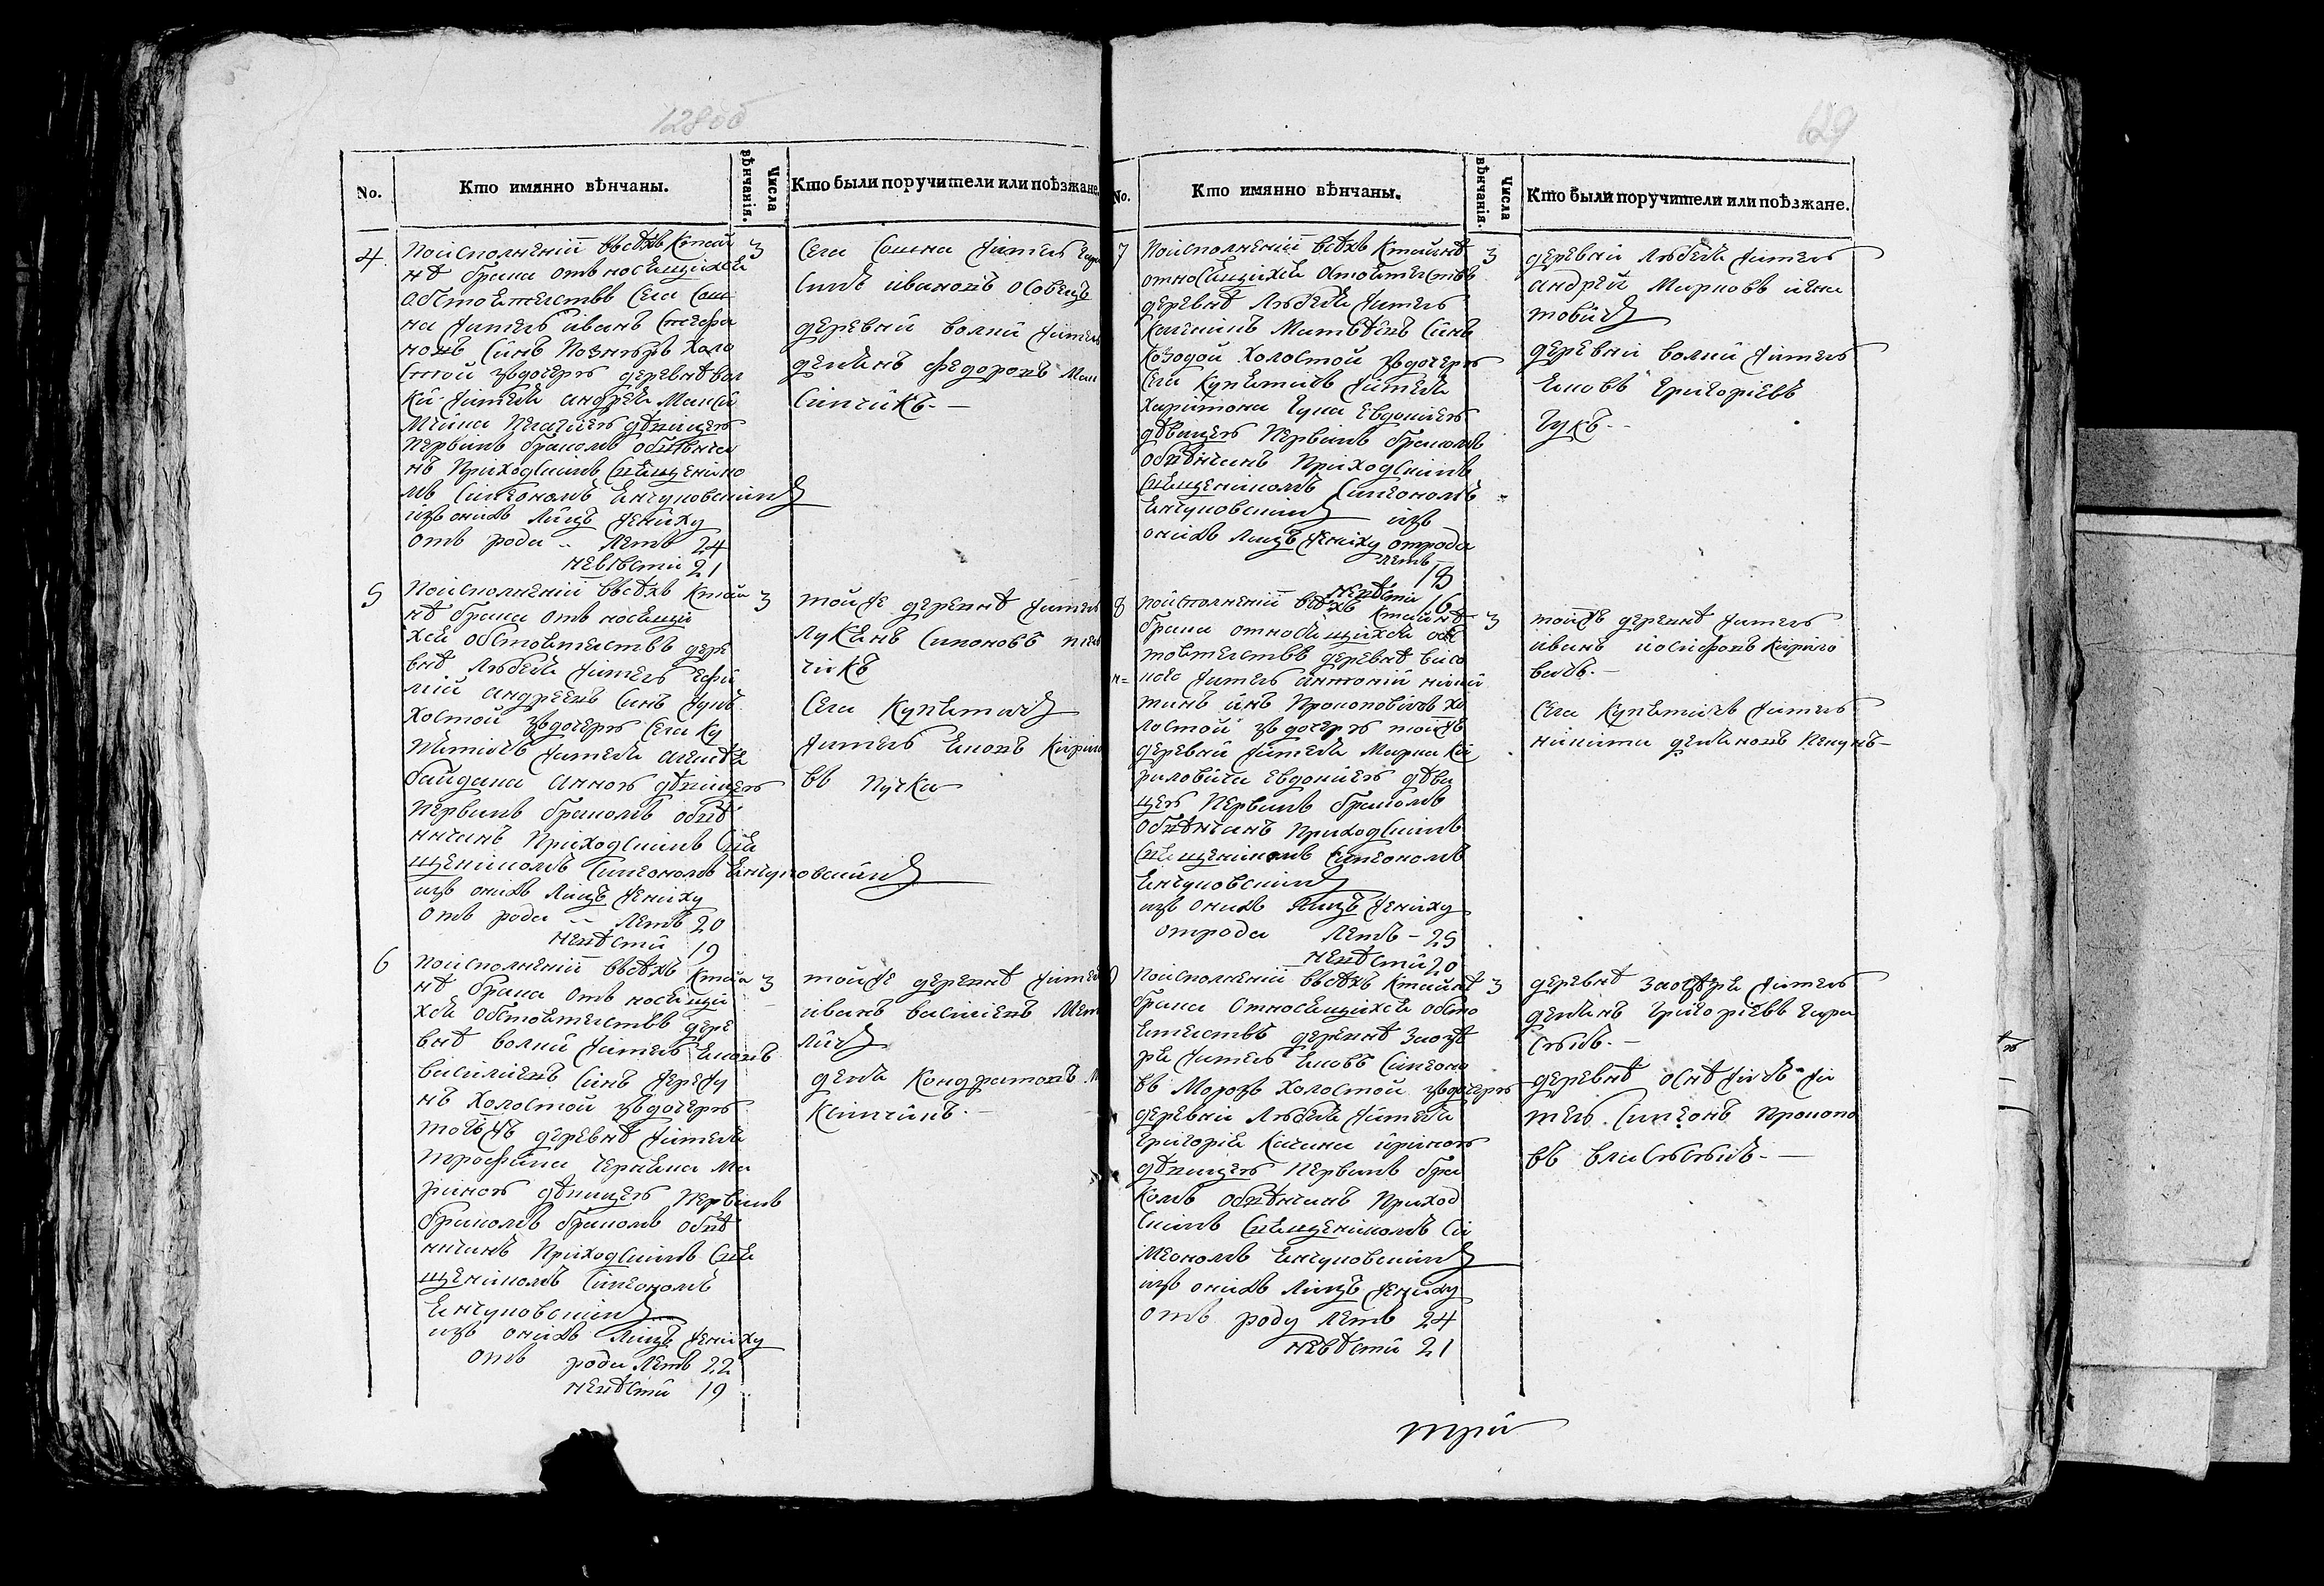 128об
629
No.
Кто имянно вѣнчаны.
Числа вѣнчанія.
Кто были поручители или поѣзжане.
4
Поисполненіи всѣхъ Ктаи
нѣ брака отъ носящихся
обстоятелствъ Села Сош
на жителъ иванъ Стефа
новъ Синъ Познѣръ Холо
стой здочеръ деревнѣ вол
ки жителя андрея Макси
мчика Пелагиеъ дѣвицеъ
первимъ бракомъ обвѣнча
нъ Приходскимъ Священико
мъ Симеономъ Енчуковскимъ
изъ онихъ лицъ жениху
отъ роду летъ 24
невѣсти 21
3
Села Сошна жителъ
Силъ ивановъ Осовецъ
деревни волки жителъ
демянъ федоровъ Мак
Симчикъ.—
5
Поисполненіи всѣхъ Ктаи
нѣ брака отъ носящи
хся обстоятелствъ дере
внѣ Любеля жителъ
андреевъ Синъ Жукъ
Холостой здочеръ Села Ку
пятичъ жителя алексѣя
байдака анноъ дѣвицеъ
первимъ бракомъ обвѣ
нчанъ Приходскимъ Свя
щеникомъ Симеономъ Енчуковскимъ
изъ онихъ лицъ жениху
отъ роду летъ 20
невѣсти 19
3
тойже деревнѣ жителъ
лукянъ Симоновъ
чикъ
Села Купятичъ
жителъ Яковъ Кирило
въ Пучка
6
Поисполненіи всѣхъ Ктаи
нѣ брака отъ носящи
хся обстоятелствъ дере
внѣ волки жителъ Яковъ
василиевъ Синъ Жережу
нъ Холостой здочеръ
тоежъ деревнѣ жителя
трофима Черняка Ма
риноъ дѣвицеъ первимъ
бракомъ бракомъ обвѣ
нчанъ Приходскимъ Свя
щеникомъ Симеономъ
Енчуковскимъ
изъ онихъ лицъ жениху
отъ роду летъ 22
невѣсти 19
3
тойже деревнѣ жителъ
иванъ василиевъ
личъ
демя Кондратовъ
Кимчикъ.—
No.
Кто имянно вѣнчаны.
Числа вѣнчанія.
Кто были поручители или поѣзжане.
7
Поисполненіи всѣхъ Ктайнѣ
относящихся обстоятелствъ
деревнѣ Любеля жителъ
Каленикъ Матвѣевъ Синъ
Козодой Холостой здочеръ
Села Купятичъ жителя
Харитона Гука Евдокиеъ
дѣвицеъ Первимъ бракомъ
обвѣнчанъ Приходскимъ
Священикомъ Симеономъ
Енчуковскимъ изъ
онихъ лицъ жениху отрода
летъ 18
невѣсти 16
3
деревни Любеля жителъ
андрей Марковъ
товичъ
деревни волки жителъ
Яковъ Григоріевъ
Гукъ.—
8
Поисполненіи всѣхъ Ктайнѣ
брака относящихся обс
тоятелствъ деревнѣ висо
кого жителъ антоній ники
тинъ инъ Прокоповичъ хо
лостой здочеръ тойже
деревни жителя Марка Ки
риловича Евдокиеъ дѣви
цеъ Первимъ бракомъ
обвѣнчанъ Приходскимъ
Священикомъ Симеономъ
Енчуковскимъ
изъ онихъ лицъ жениху
отроду летъ - 25
невѣсти 20
3
тойже деревнѣ жителъ
иванъ иосифовъ Кирило
вичъ.—
Села Купятичъ жителъ
никита демяновъ Пекунъ—
9
Поисполненіи всѣхъ Ктайнѣ
брака относящихся обсто
ятелствъ деревнѣ Заозѣ
ря жителъ Яковъ Симеоно
въ Морозъ Холостой здочеръ
деревни Любеля жителя
Григорія Качана ириноъ
дѣвицеъ Первимъ бра
комъ обвѣнчанъ Приход
скимъ Священикомъ Си
меономъ Енчуковскимъ
изъ онихъ лицъ жениху
отъ роду летъ 24
невѣсти 21
3
деревнѣ Заозѣря жителъ
демянъ Григоріевъ Гера
симъ.—
деревнѣ оснѣжичъ жи
телъ Симеонъ Прокопо
въ
три